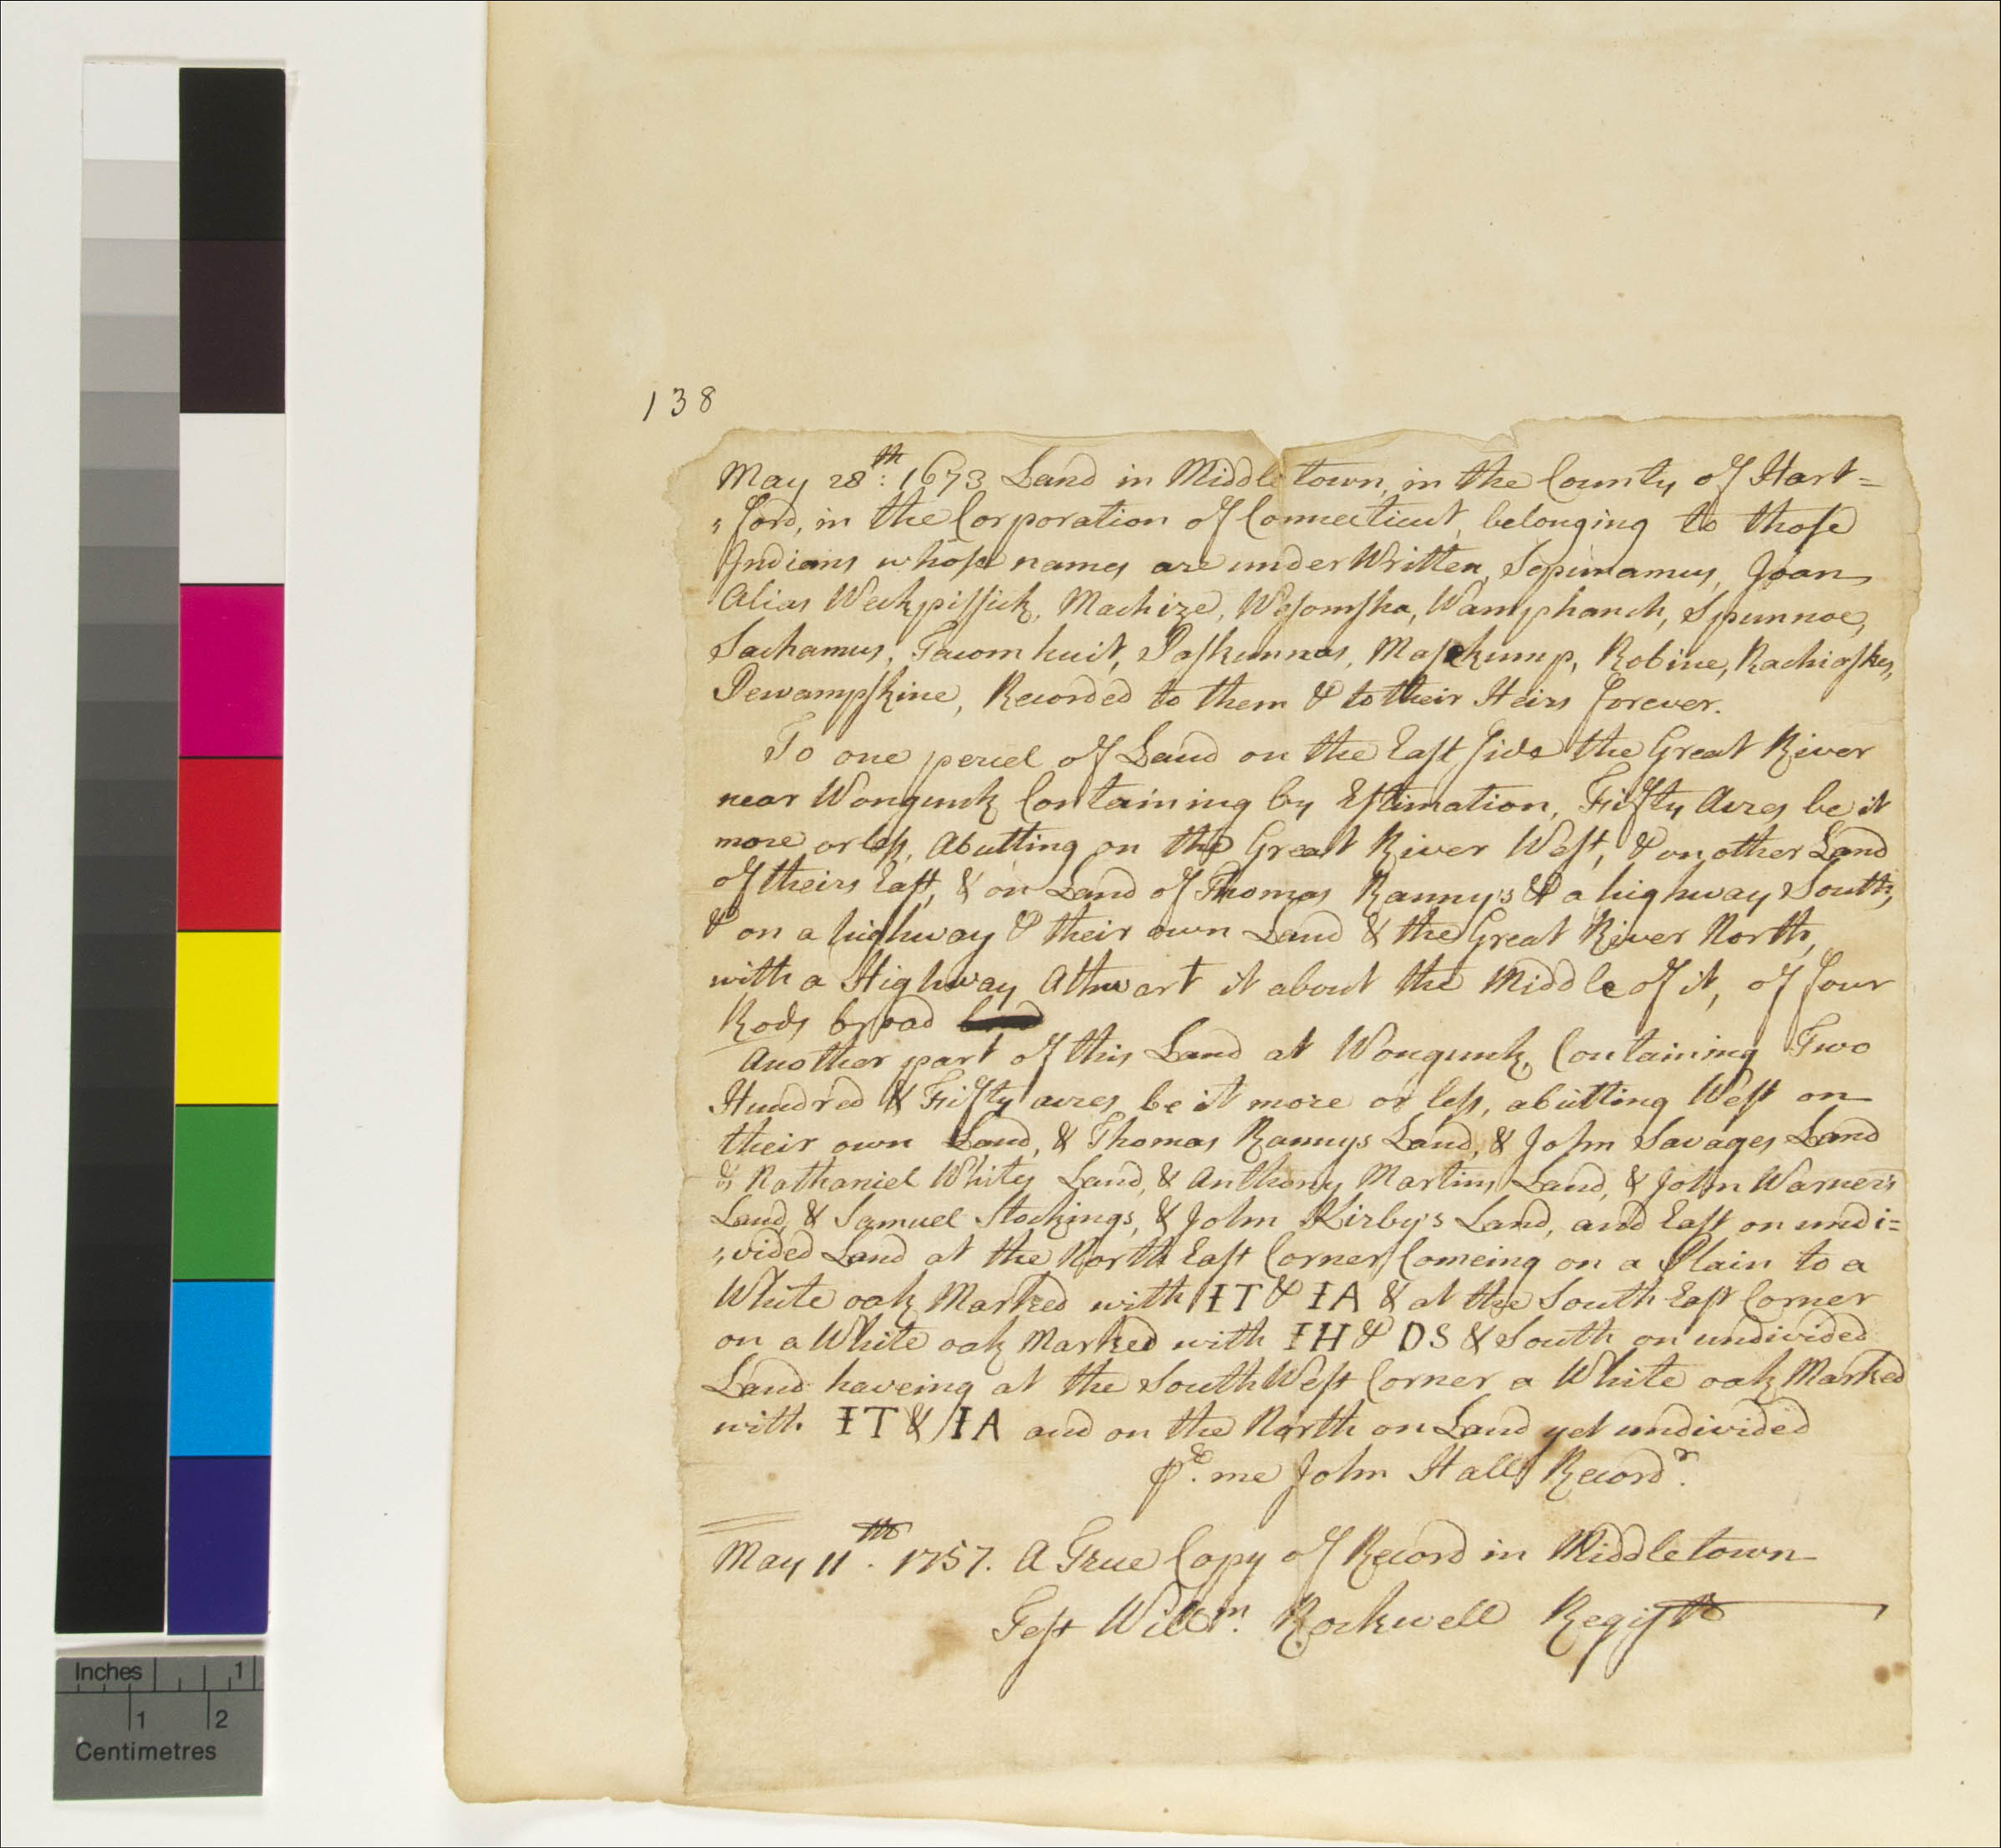 138
May 28th: 1673 Land in Middletown, in the County of Hart=
"ford, in the Corporation of Connecticut, belonging to those
Indians whose names are under Written, Sepunamus, Joan
Alias Weekpissick, Machize, Wesomsha, Wamphanch, Spunnoe,
Sachamus, Tacomhuit, Paskunnas, Masekump, Robine, Rachiaskes,
Pewampskine, Recorded to them & to their Heirs forever.
To one percel of Land on the East side the Great River
near Wongunk Containing by Estimation, Fifty Acres be it
more or less, Abutting on the Great River West, & on other Land
of theirs East, & on Land of Thomas Ranny's & a highway South,
& on a highway & their own Land & the Great River North,
with a Highway Athwart it about the Middle of it, of four
Rods broad
Another part of this Land at Wongunk, Containing Two
Hundred & Fifty acres be it more or less, abutting West on
their own Land, & Thomas Rannys Land, & John Savages Land
& Nathaniel Whites Land, & Anthony Martins Land, & John Warner's
Land & Samuel Stockings, & John Kirby's Land, and East on undi=
"vided Land at the North East Corner Comeing on a Plain to a
White oak Marked with IT & IA & at the South East Corner
on a White oak Marked with IH & DS & South on undivided
Land haveing at the South West Corner a White oak Marked
with IT & IA and on the North on Land yet undivided
pr. me John Hall Recordr.
May 11th. 1757. A True Copy of Record in Middletown
Test Willm. Rockwell Registr
Inches 1
1 2
Centimetres